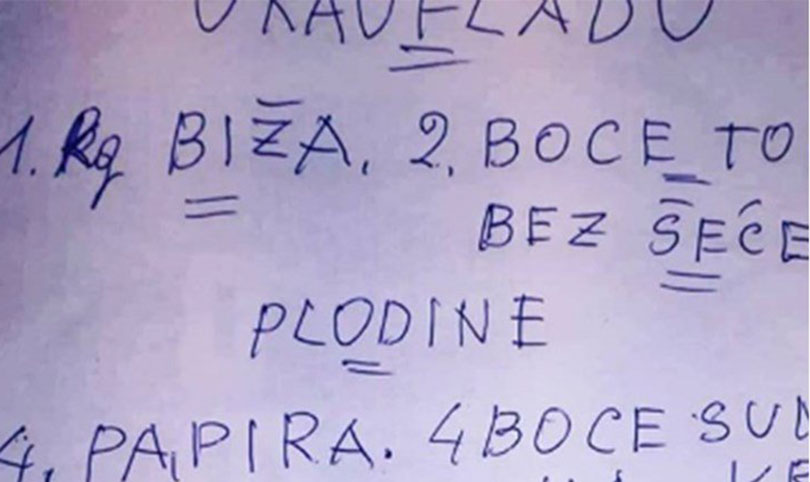 U KAUFLADU
1. kg BIŽA. 2. BOCE TO
BEZ ŠEĆE
PLODINE
4. PAPIRA. 4 BOCE SUD